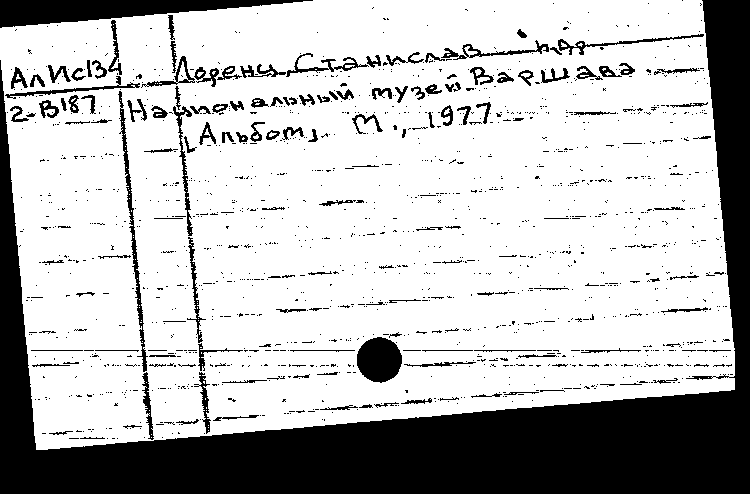 АлИс134 . Лоренц, Станислав и др.
2-В187 Национальный музей Варшава.
[Альбом]. М., 1977.